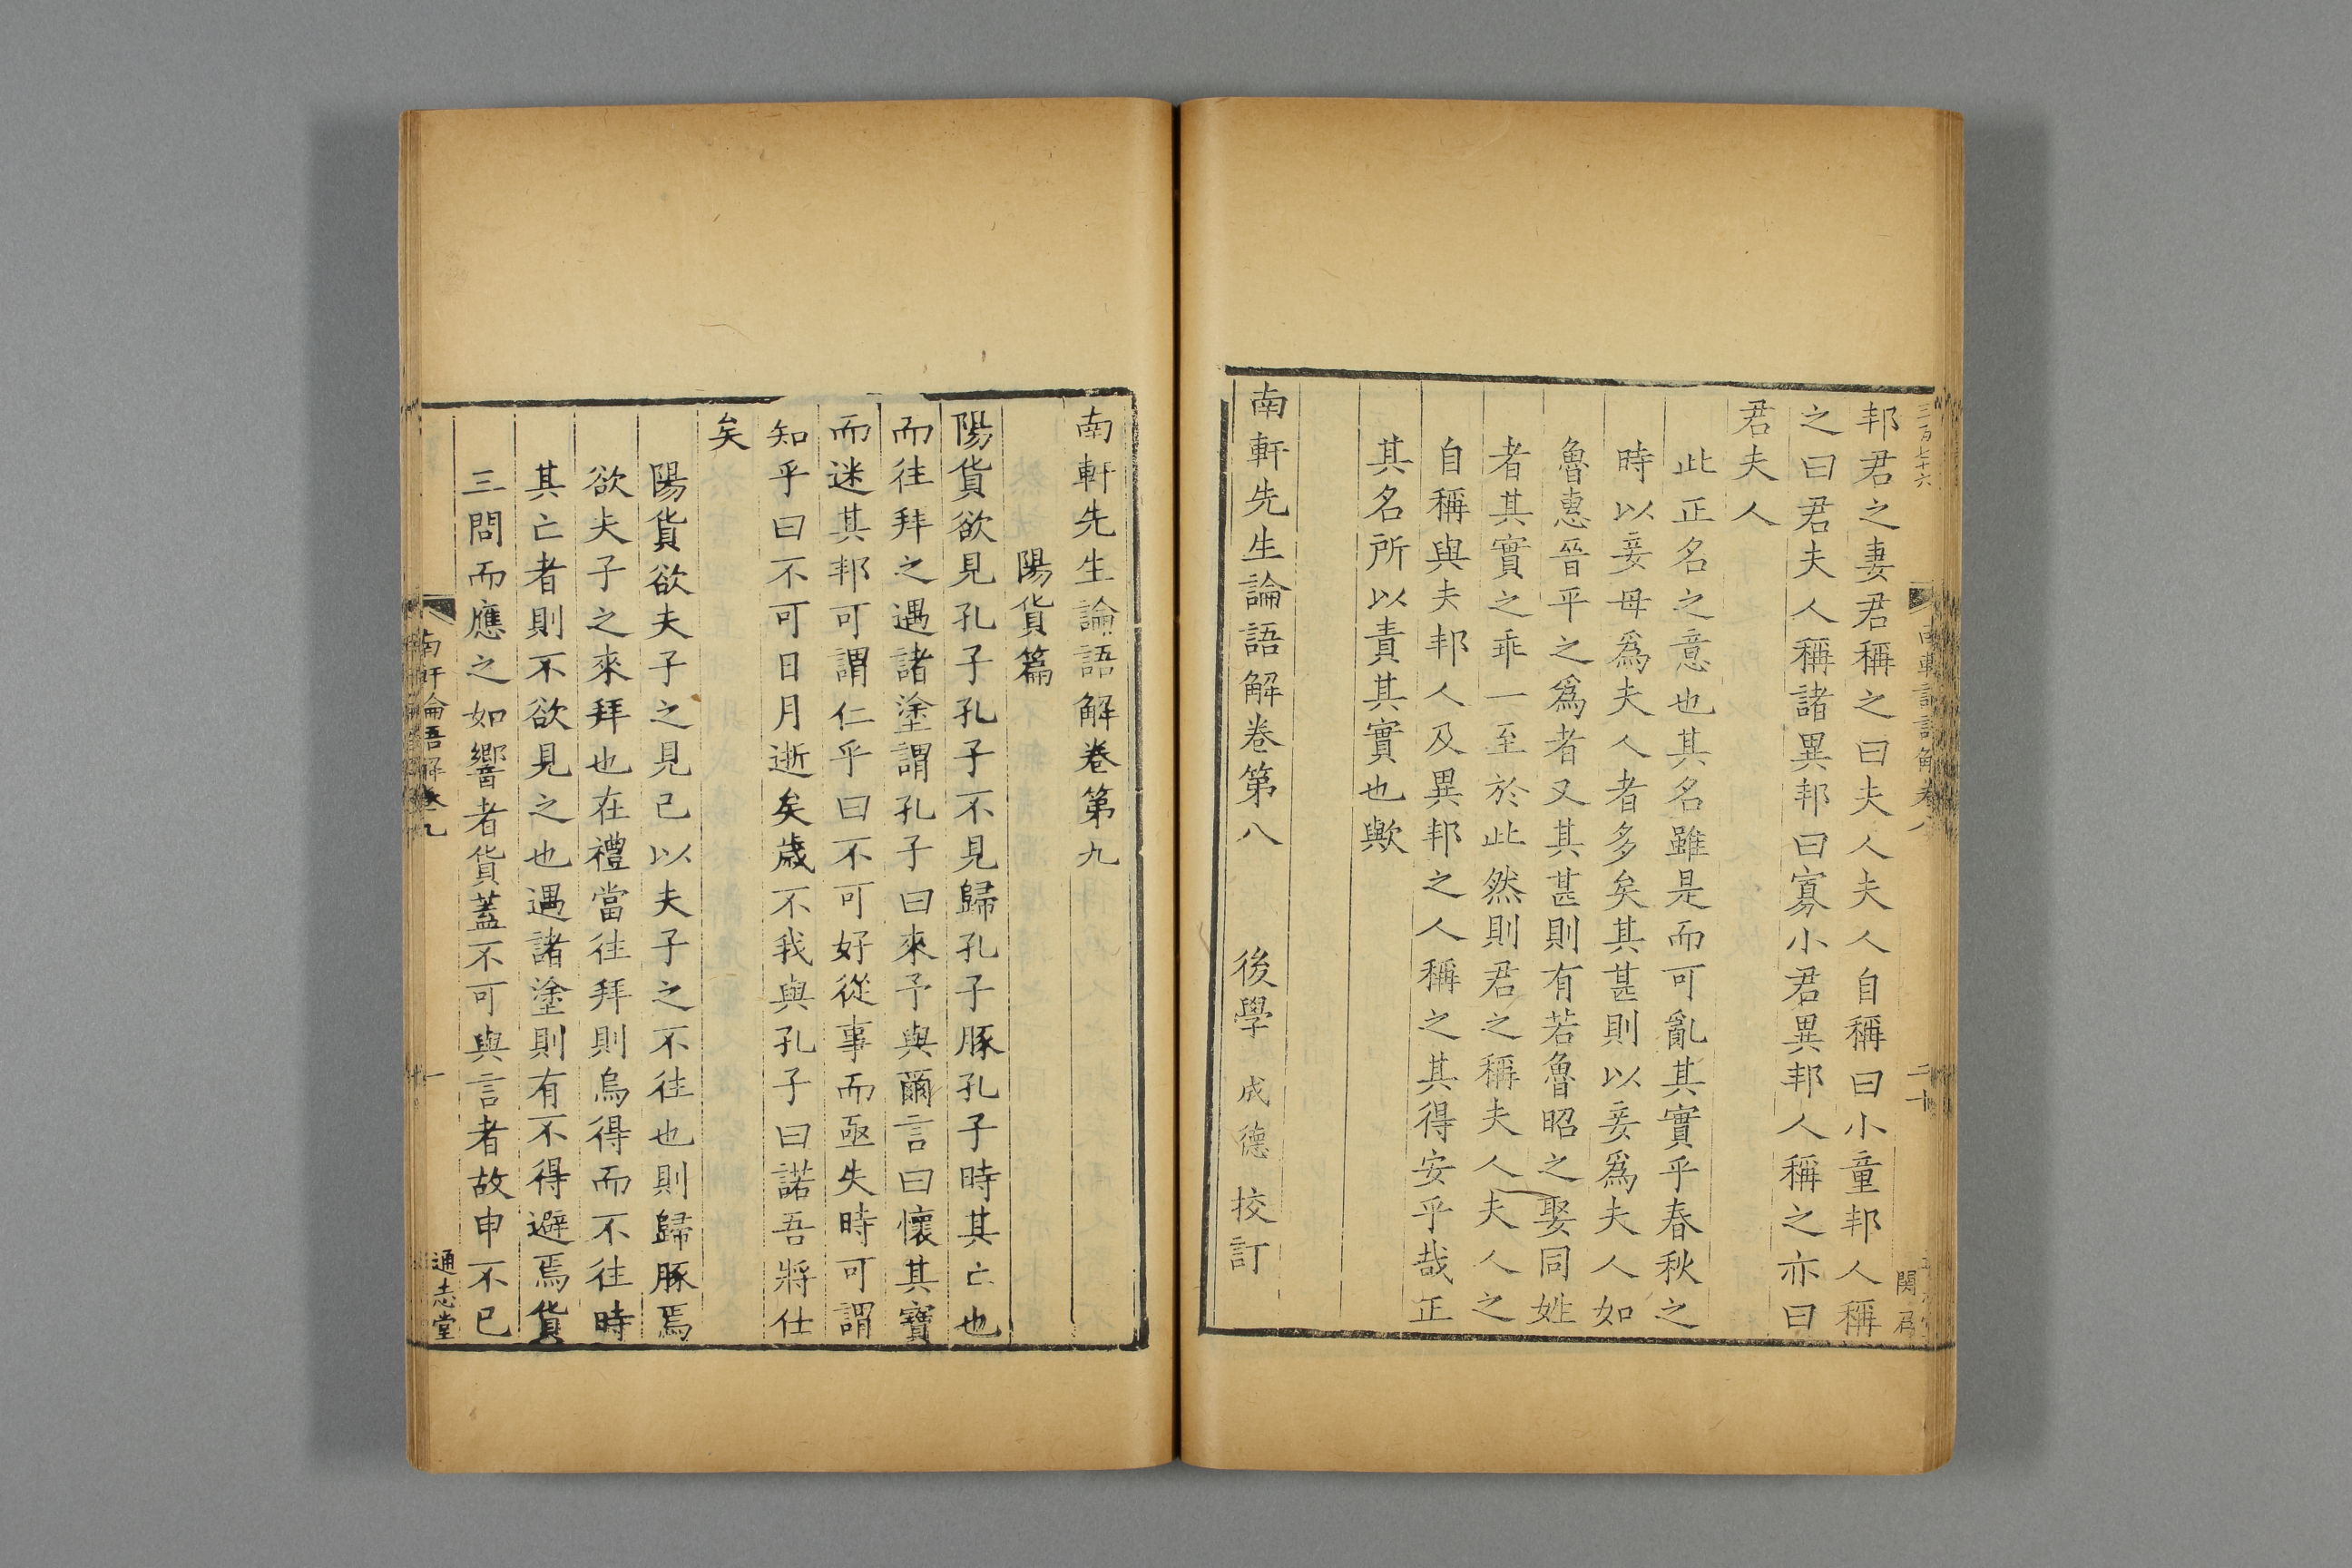 三百七十六
邦君之妻君稱之曰夫人夫人自稱曰小童邦人稱
之曰君夫人稱諸異邦曰寡小君異邦人稱之亦曰
君夫人
此正名之意也其名雖是而可亂其實乎春秋之
時以妾母爲夫人者多矣其甚則以妾爲夫人如
魯惠晉平之爲者又其甚則有若魯昭之娶同姓
者其實之乖一至於此然則君之稱夫人夫人之
自稱與夫邦人及異邦之人稱之其得安乎哉正
其名所以責其實也歟
南軒先生論語解卷第八 後學 成德 挍訂
南軒先生論語解卷第九
陽貨篇
陽貨欲見孔子孔子不見歸孔子豚孔子時其亡也
而往拜之遇諸塗謂孔子曰來予與爾言曰懷其寶
而迷其邦可謂仁乎曰不可好從事而亟失時可謂
知乎曰不可日月逝矣歲不我與孔子曰諾吾將仕
矣
陽貨欲夫子之見已以夫子之不往也則歸豚焉
欲夫子之來拜也在禮當往拜則烏得而不往時
其亡者則不欲見之也遇諸塗則有不得避焉貨
三問而應之如響者貨蓋不可與言者故申不已
南軒論語解卷九
一
通志堂